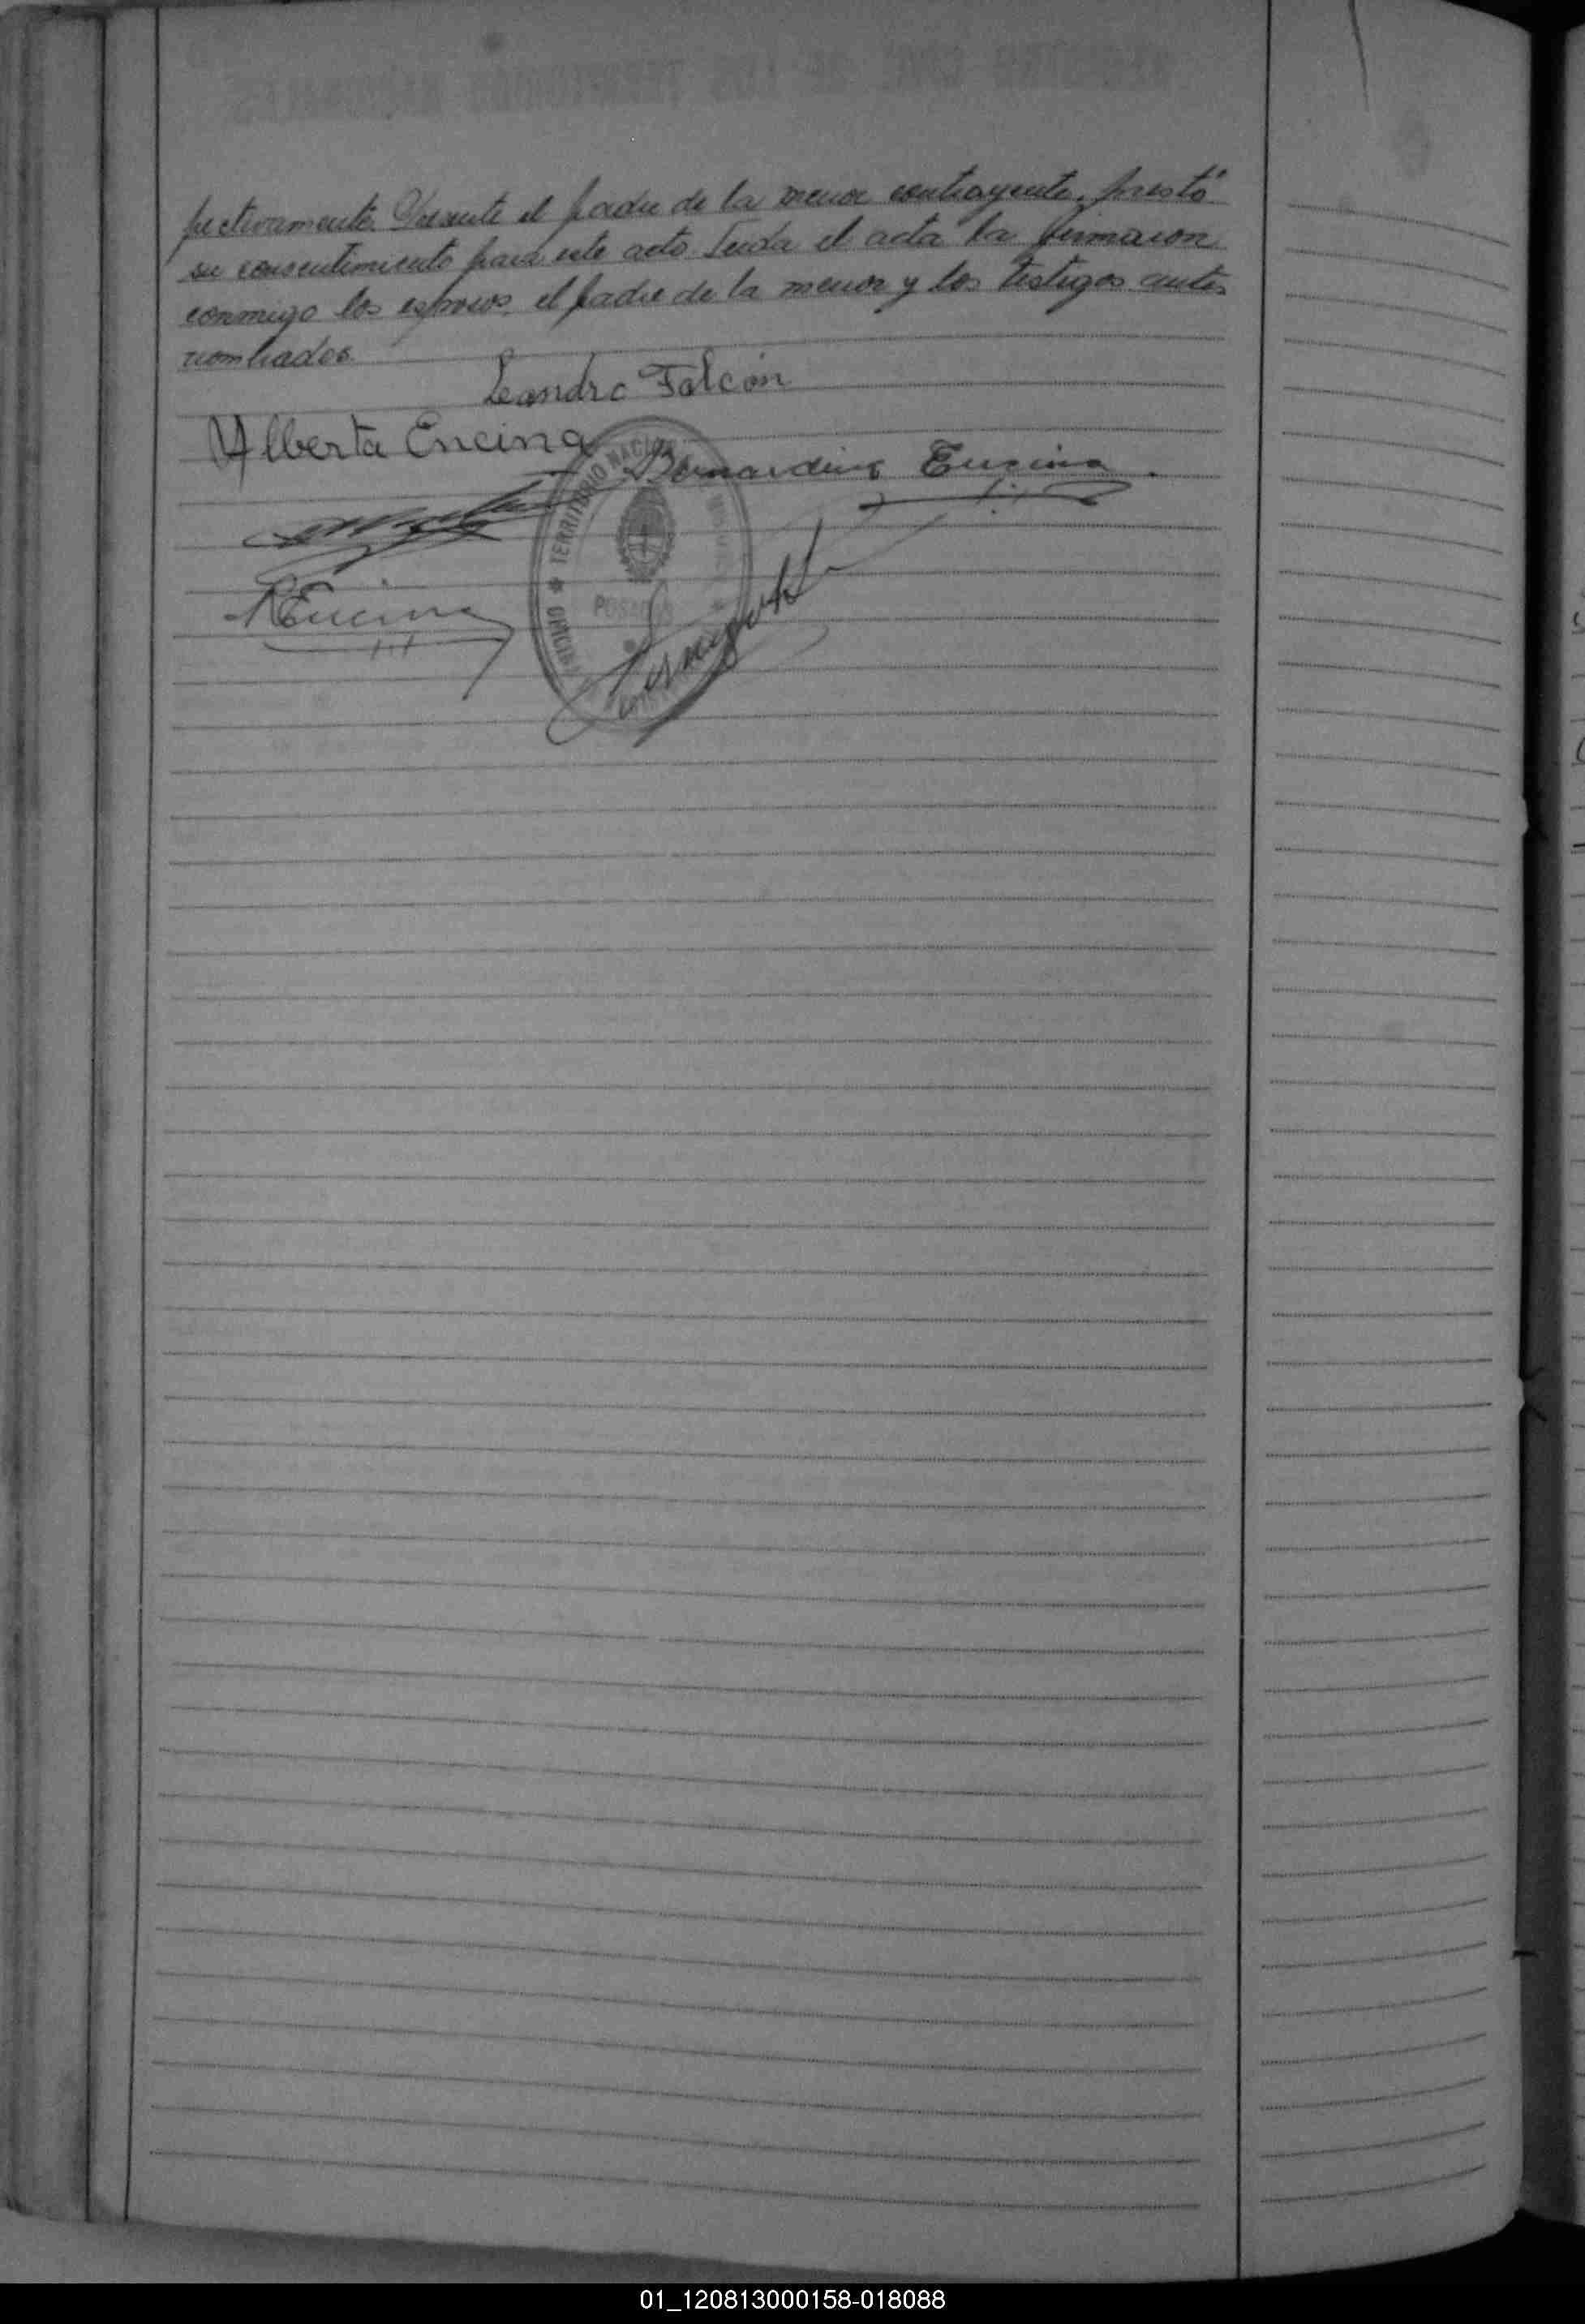 pectivamente. Presente el padre de la menor contrayente, prestó
su consentimiento para este acto. Leida el acta la firmaron
conmigo los esposos, el padre de la menor y los testigos antes
nombrados.
Leandro Falcón
Alberta Encina
Bernardino Encina.
Encina
TERRITORIO NACIO
POSADAS
01_120813000158-018088